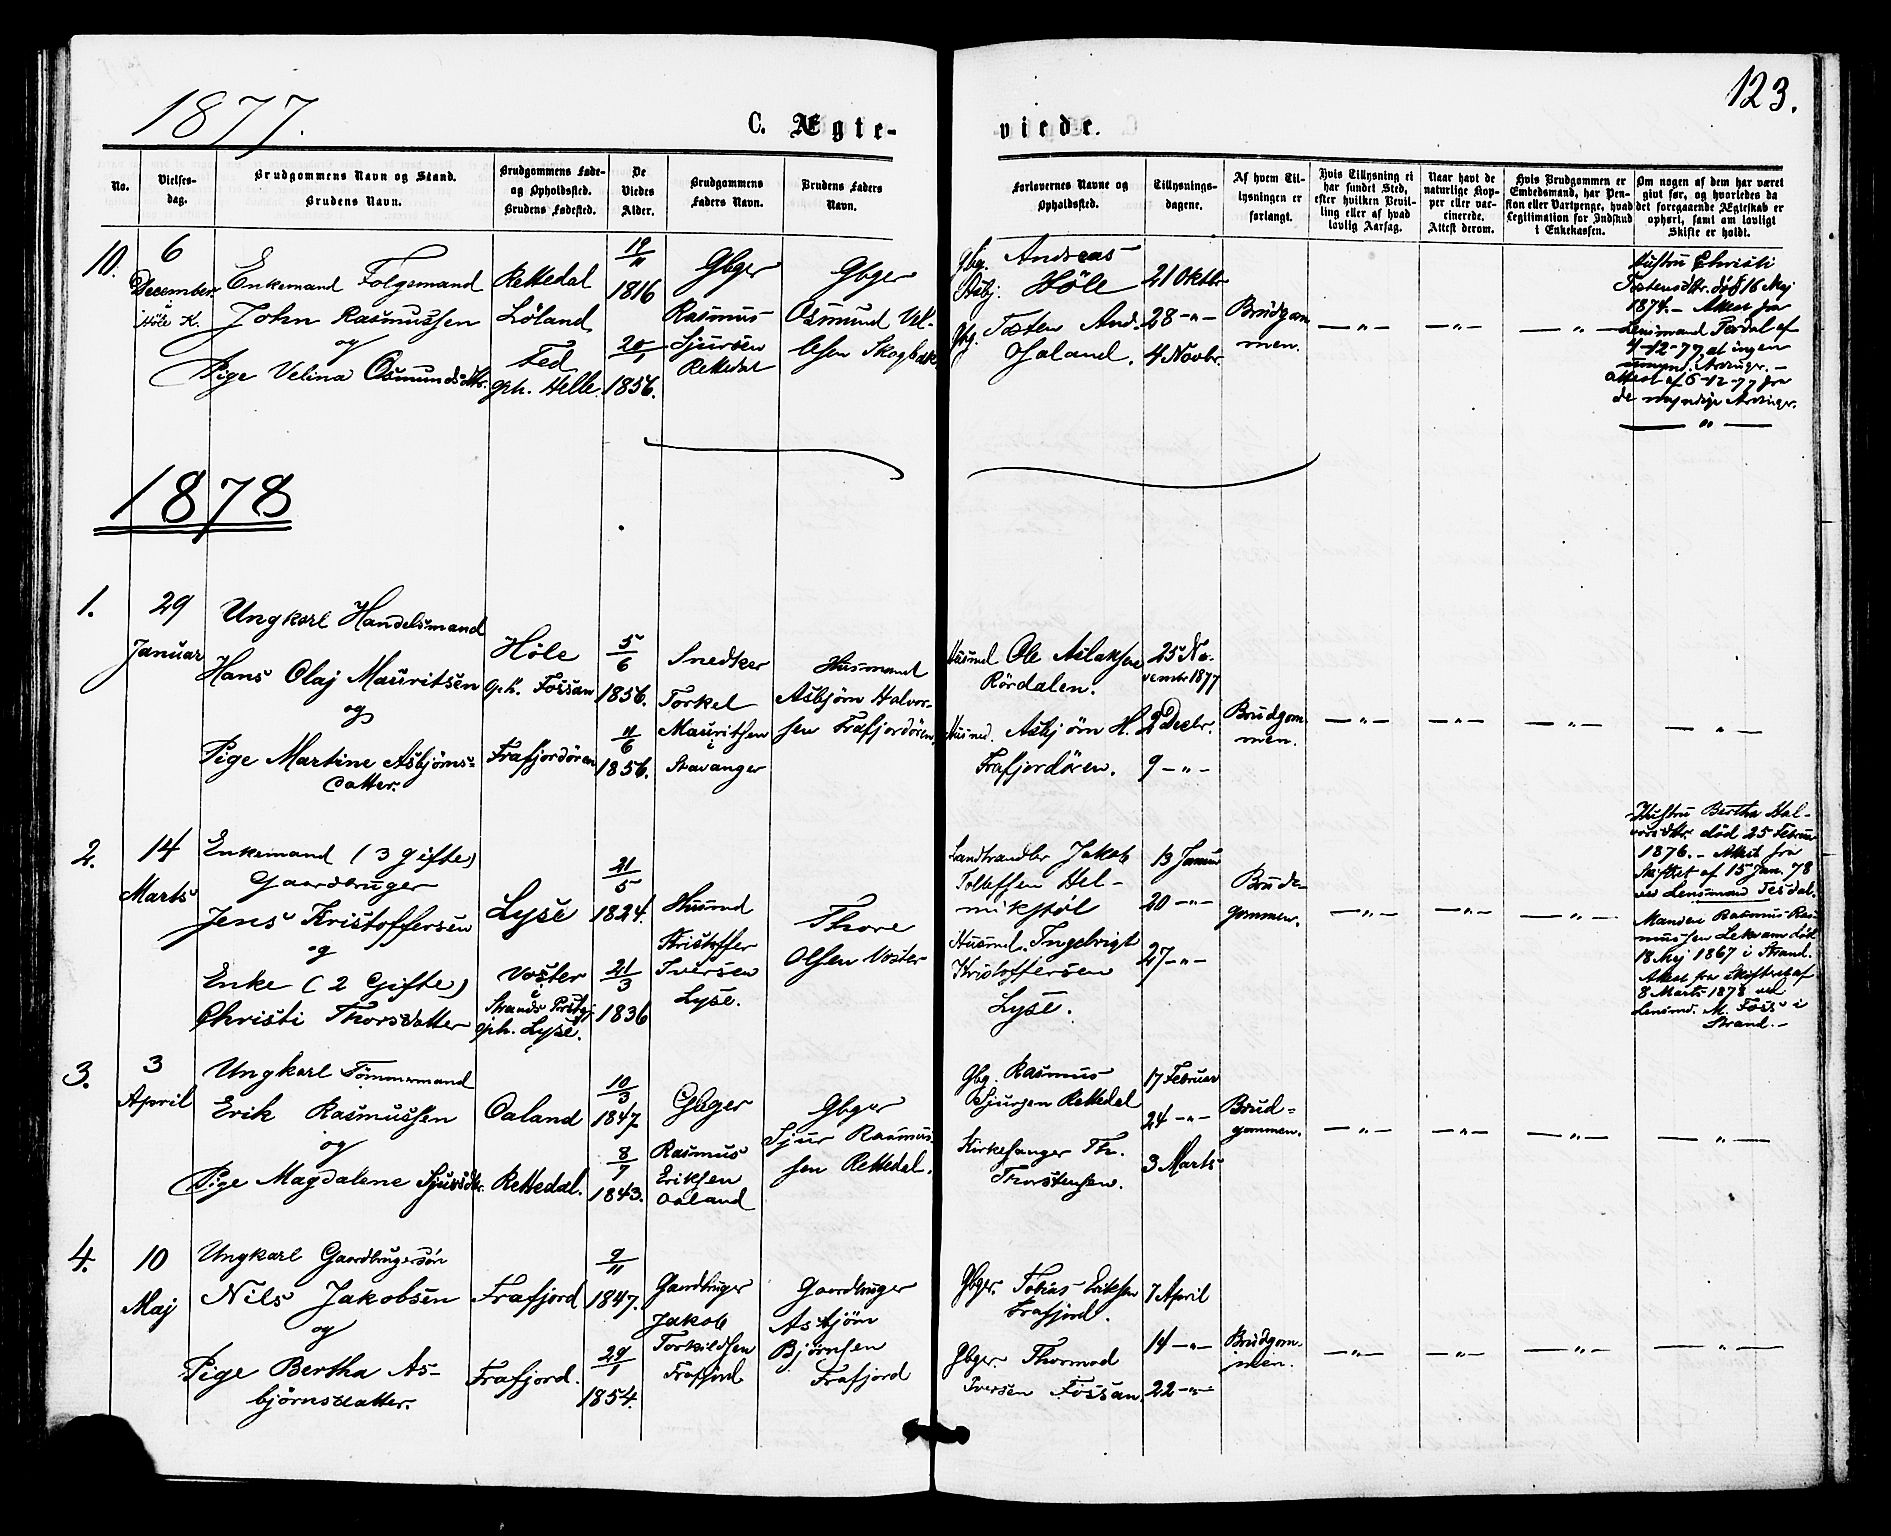 1877.
123.
C. Ægte-
viede.
No.
Vielses-
dag.
Brudgommens Navn og Stand.
Brudens Navn.
Brudgommens Føde-
og Opholdssted.
Brudens Fødested.
De
Viedes
Alder.
Brudgommens
Faders Navn.
Brudens Faders
Navn.
Forlovernes Navne og
Opholdssted.
Tillysnings-
dagene.
Af hvem Til-
lysningen er
forlangt.
Hvis Tillysning ei
har fundet Sted,
efter hvilken Bevil-
ling eller af hvad
lovlig Aarsag.
Naar havt de
naturlige Kop-
per eller vac-
cinerede.
Attest derom.
Hvis Brudgommen er
Embedsmand, har Pen-
sion eller Vartpenge, hvad
Legitimation for Indskud
i Enkekassen.
Om nogen af dem har været
givt før, og hvorledes da
det foregaaende Ægteskab er
ophørt, samt om lovligt
Skifte er holdt.
10.
6
December
i
Høle K.
Enkemand Følgemand
John Rasmussen
og
Pige Velina Osmundsdtr.
Rettedal
Løland
Fed
oph. Helle.
19/11
1816
20/1
1856.
Gbger
Rasmus
Sjursen
Rettedal
Gbger
Osmund Vel-
lesen Skogbak
Gbg. Andreas
Asbj. Høle
Gbg. Tosten And.
Haland.
21 Oktbr
28 -"-
4 Novbr.
Brudgom
men.
-"-
-"-
-"-
Hustru Christi
Tostensdtr. død 16 Maj
1874. - Attest fra
Lensmand Tesdal af
4-12-77, at ingen
umynd. Arvingr. -
attest af 6-12-77 fra
de myndige Arvingr.
-"-
1878
1.
29
Januar
Ungkarl Handelsmand
Hans Olaj Mauritsen
og
Pige Martine Asbjørns-
datter.
Høle
oph. Fossan
Frafjordøren
5/6
1856.
11/6
1856.
Snedker
Torkel
Mauritsen
i
Stavanger
Husmand
Asbjørn Halvor-
sen Frafjordøren
Husmd Ole Aslaksen
Rördalen.
Husmd. Asbjørn H.
Frafjordøren.
25 No-
vembr 1877
2 Decbr.
9 -"-
Brudgom
men.
-"-
-"-
-"-
-"-
2.
14
Marts
Enkemand (3 gifte)
Gaardbruger
Jens Kristoffersen
og
Enke (2 Gifte)
Christi Thorsdatter
Lyse
Voster
i
Strands Præstgj.
oph. Lyse.
21/5
1824.
21/3
1836
Husmd
Kristoffer
Iversen
Lyse.
Thore
Olsen Voster
Landhandler Jakob
Tollefsen Hel-
mikstøl
Husmd. Ingebrigt
Kristoffersen
Lyse.
13 Januar
20 -"-
27 -"-
Brude-
gommen.
-"-
-"-
-"-
Hustru Bertha Hal-
vorsdtr. død 25 Februar
1876. - Attest fra
Skiftet af 15 Jan. 78
ved Lensmand Tesdal.
Manden Rasmus Ras-
mussen Lekvam død
18 Maj 1867 i Strand.
Attest fra Skifteret af
8 Marts 1878 ved
Lensmd. M. Foss i
Strand. -
3.
3
April
Ungkarl Tømmermand
Erik Rasmussen
og
Pige Magdalene Sjursdtr.
Oaland
Rettedal.
10/3
1847
8/7
1843.
Gbger
Rasmus
Eriksen
Oaland
Gbger
Sjur Rasmus-
sen Rettedal.
Gbg. Rasmus
Sjursen Rettedal
Kirkesanger Th.
Thorstensen.
17 Februar
24 -"-
3 Marts
Brud-
gommen.
-"-
-"-
-"-
-"-
4.
10
Maj
Ungkarl Gaardbrugersøn
Nils Jakobsen
og
Pige Bertha As-
bjørnsdatter.
Frafjord
Frafjord.
9/11
1847.
29/1
1854.
Gaardbruger
Jakob
Torkildsen
Frafjord
Gaardbruger
Asbjørn
Bjørnsen
Frafjord
Gbger. Tobias Eriksen
Frafjord.
Gbger. Thormod
Iversen Fossan.
7 April
14 -"-
22 -"-
Brudgom-
men.
-"-
-"-
-"-
-"-